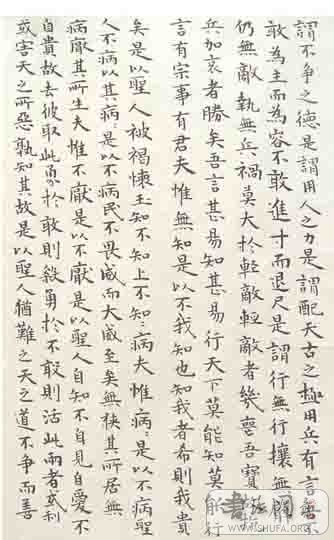 謂不争之德是謂用人之力是謂配天古之極用兵有言吾不
敢為主而為客不敢進寸而退尺是謂行無行攘無
仍無敵執無兵禍莫大於輕敵輕敵者幾喪吾寳
兵加哀者勝矣吾言甚易知甚易行天下莫能知莫能行
言有宗事有君夫惟無知是以不我知也知我者希則我貴
矣是以聖人被褐懷玉知不知上不知〻病夫惟病〻是以不病聖
人不病以其病〻是以不病民不畏威而大威至矣無狹其所居無
病厭其所生夫惟不厭是以不厭是以聖人自知不自見自愛不
自貴故去彼取此勇於敢則殺勇於不敢則活此兩者或利
或害天之所惡孰知其故是以聖人猶難之天之道不争而善
書法网
WWW.SHUFA.ORG